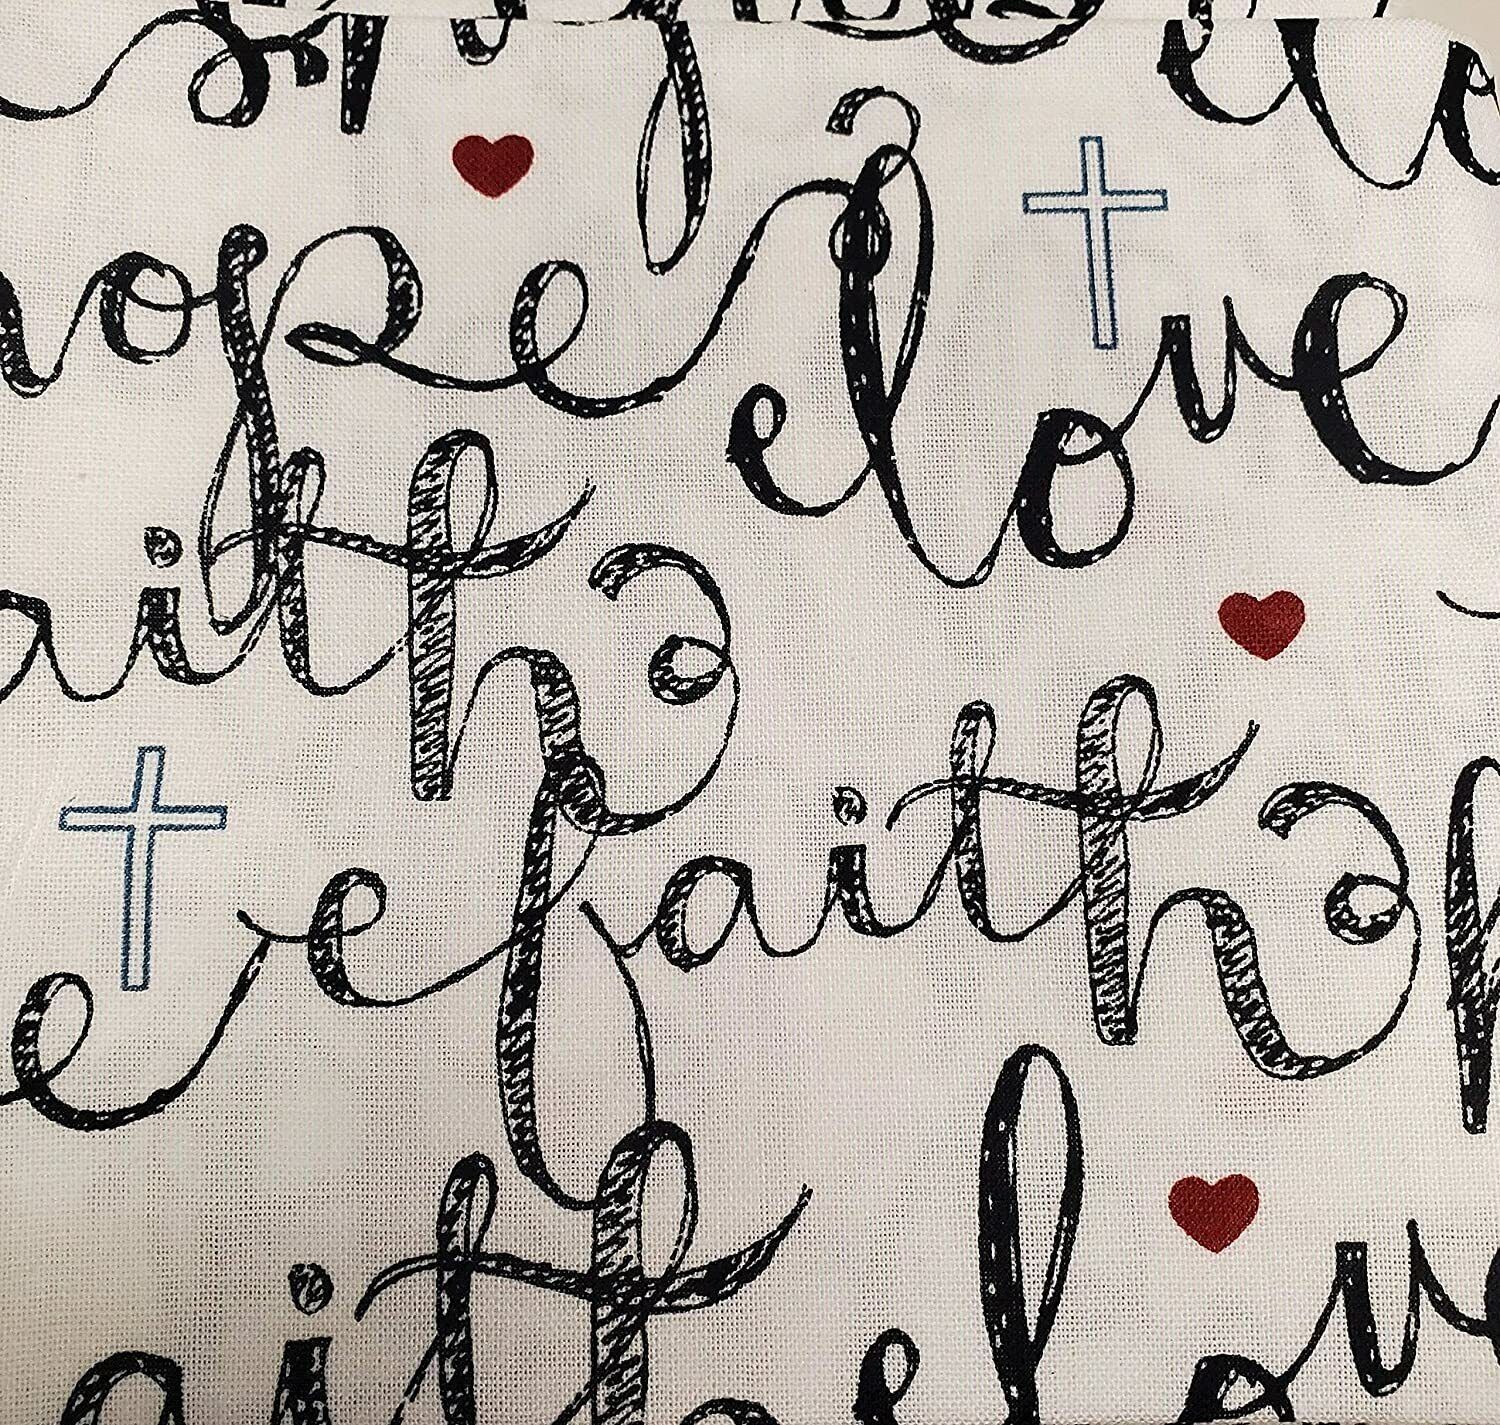 hope love
faith
faith
faith love